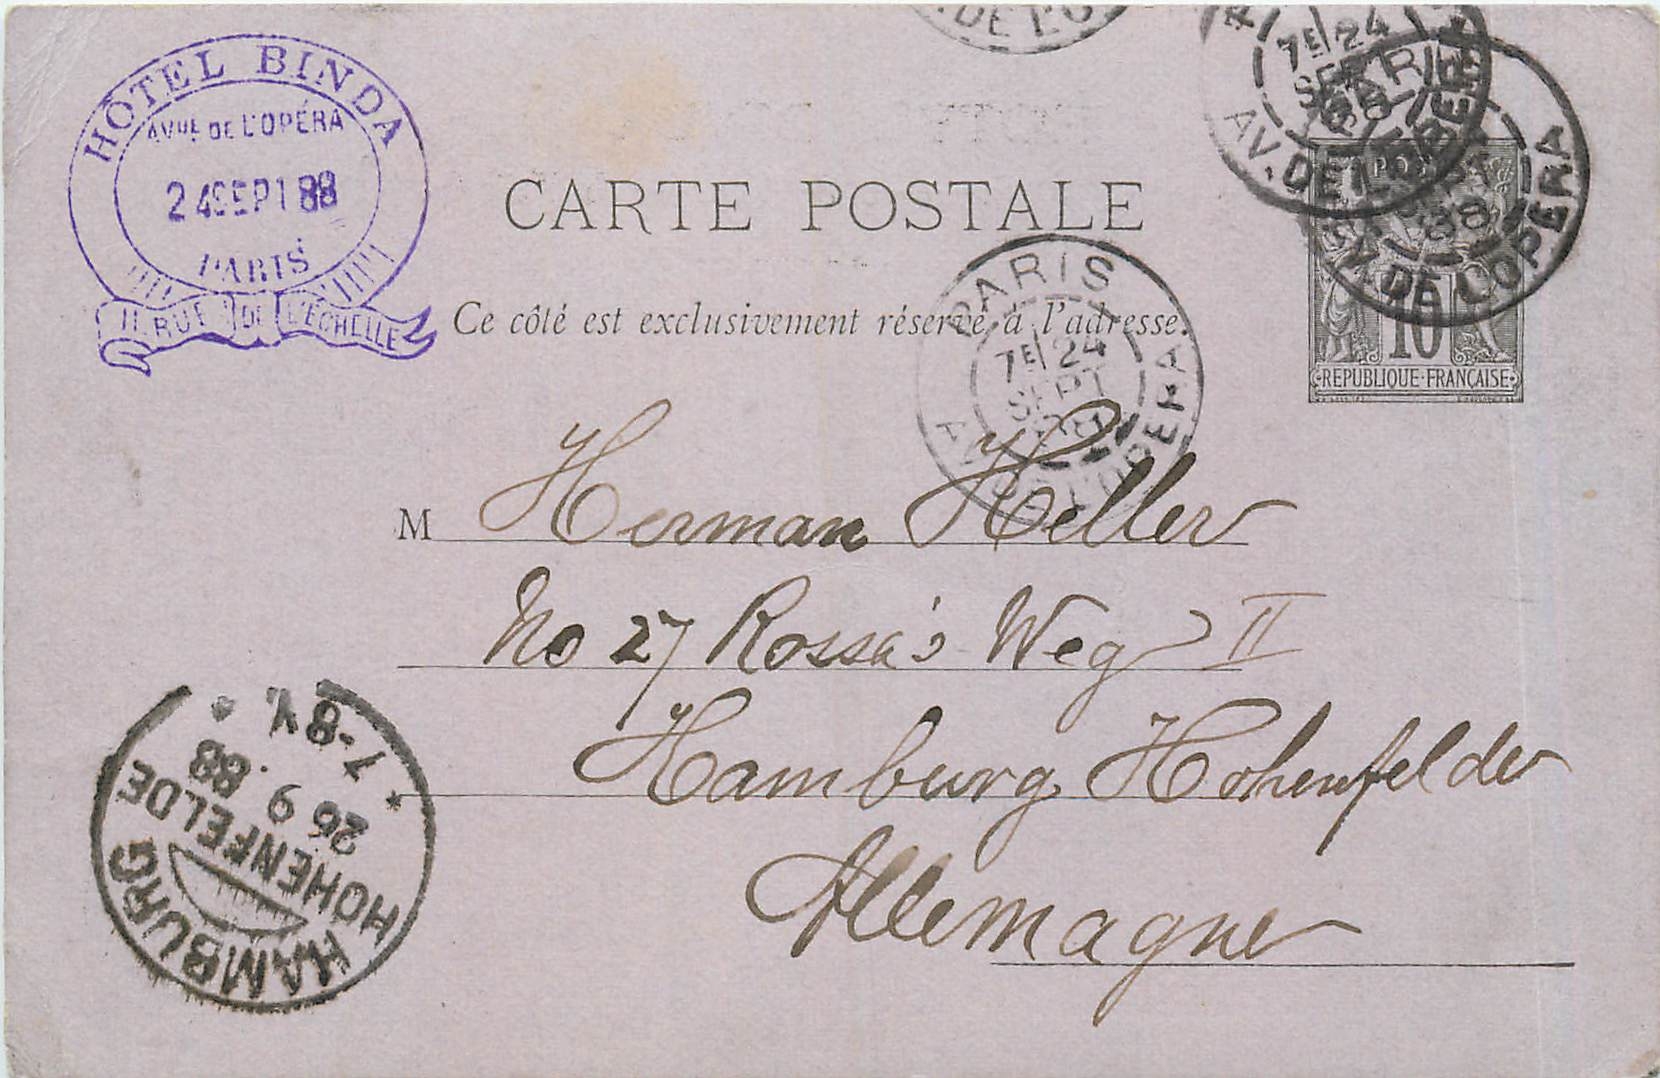 HÔTEL BINDA
AVUE DE L'OPÉRA
24 SEPT 88
PARIS
11. RUE DE L'ÉCHELLE
DE L'O
7E 24
SEPT
88
AV. DE L'OPERA
PARIS
AV. DE L'OPERA
CARTE POSTALE
Ce côté est exclusivement réservé à l'adresse.
10
REPUBLIQUE FRANÇAISE
PARIS
7E 24
SEPT
88
AV. DE L'OPERA
M Herman Heller
No 27 Rossa's Weg II
Hamburg Hohenfelder
Allemagne
HAMBURG
HOHENFELDE
26 9 88
7-8 V.